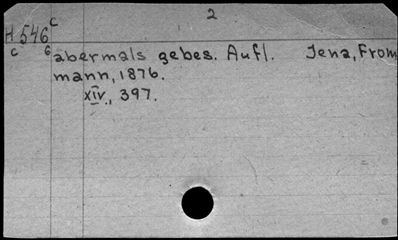 2
H 546 c
c 6 abermals gebes. Aufl. Jena, From
mann, 1876.
XIV, 397.